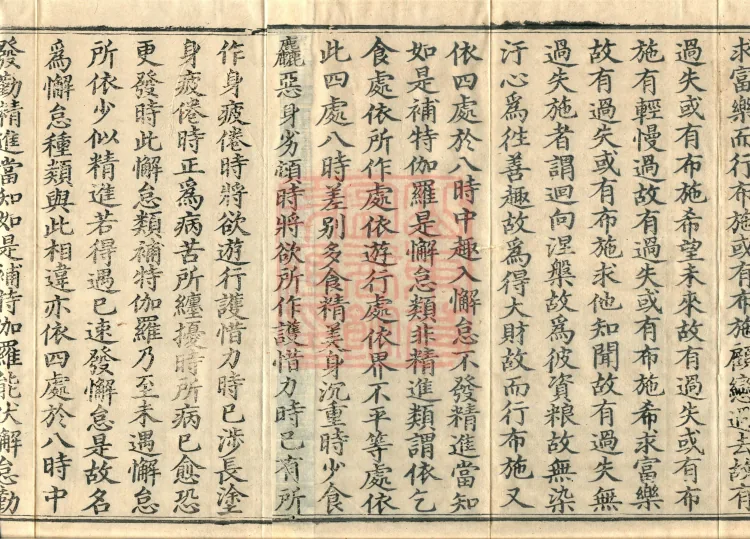 求富樂而行布施或有布施顧戀過去故有
過失或有布施希望未來故有過失或有布
施有輕慢過故有過失或有布施希求富樂
故有過失或有布施求他知聞故有過失無
過失施者謂迴向涅槃故為彼資粮故無染
汙心為徃善趣故為得大財故而行布施又
依四處於八時中趣入懈怠不發精進當知
如是補特伽羅是懈怠類非精進類謂依乞
食處依所作處依遊行處依界不平等處依
此四處八時差别多食精美身沉重時少食
麤惡身劣頓時將欲所作護惜力時已有所
作身疲倦時將欲遊行護惜力時已涉長塗
身疲倦時正為病苦所纏擾時所病已愈恐
更發時此懈怠類補特伽羅乃至未遇懈怠
所依少似精進若得遇已速發懈怠是故名
為懈怠種類與此相違亦依四處於八時中
發勤精進當知如是補特伽羅能伏懈怠勤